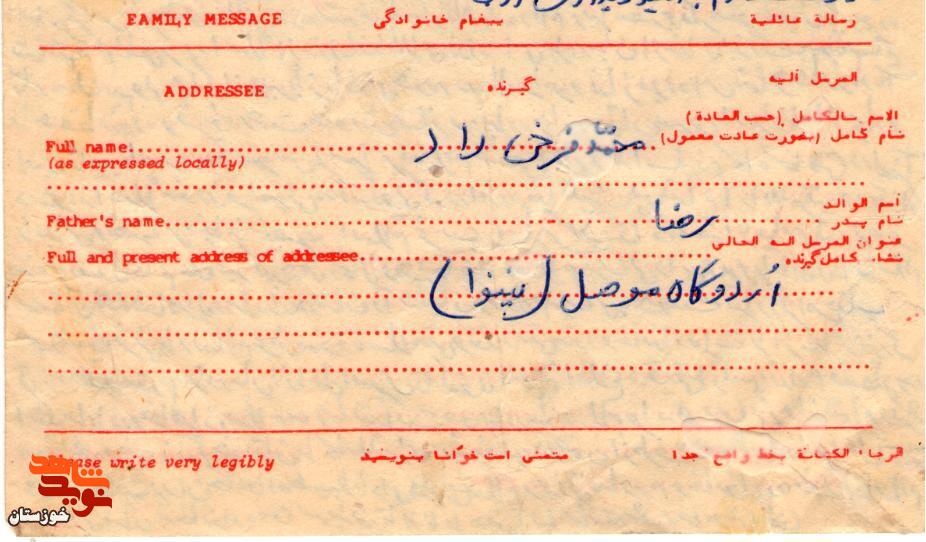 FAMILY MESSAGE پیغام خانوادگی رسالة عائلية
ADDRESSEE گیرنده المرسل الیه
الاسم بالكامل (حسب العادة)
Full name محمّد فرخی راد نام کامل (بصورت عادت معمول)
(as expressed locally)
اسم الوالد
Father's name رضا نام پدر
عنوان المرسل اليه الحالي
Full and present address of addressee نشانی کامل گیرنده
اُردوگاه موصل (نینوا)
Please write very legibly متمنی است خوانا بنویسید الرجاء الكتابة بخط واضح جدا
شاهد
نوید
خوزستان